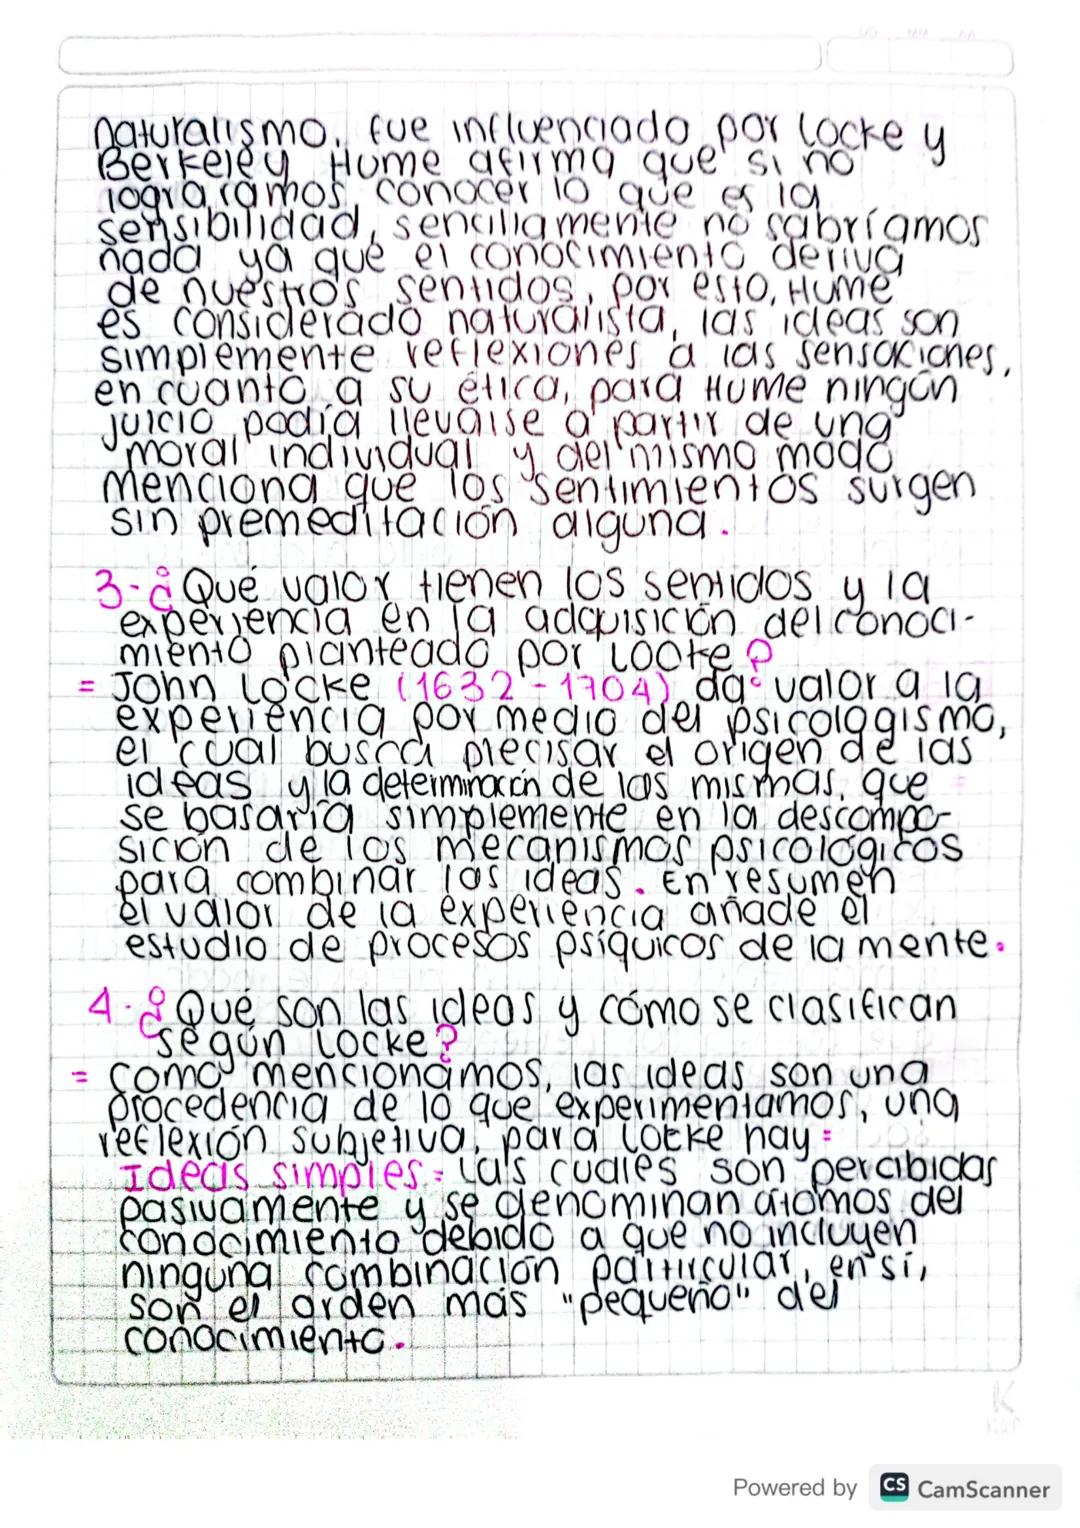 naturalismo, fue influenciado por Locke y
Berkeley Hume afirma que si no
lograramos conocer lo que es la
sensibilidad, sencillamente no sabríamos
nada ya que el conocimiento deriva
de nuestros sentidos, por esto, Hume
es considerado naturalista, las ideas son
simplemente reflexiones a las sensaciones,
en cuanto a su ética, para Hume ningún
juicio podía llevarse a partir de una
moral individual y del mismo modo
menciona que los sentimientos surgen
sin premeditación alguna.
3-¿Qué valor tienen los sentidos y la
experiencia en la adquisición del conoci-
miento planteado por Locke?
= John Locke (1632-1704) da valor a la
experiencia por medio del psicologismo,
el cual busca precisar el origen de las
ideas y la determinación de las mismas, que
se basaría simplemente en la descompo-
sición de los mecanismos psicológicos
para combinar las ideas. En resumen
el valor de la experiencia añade el
estudio de procesos psíquicos de la mente.
4-¿Qué son las ideas y cómo se clasifican
según Locke?
= Como mencionamos, las ideas son una
procedencia de lo que experimentamos, una
reflexión subjetiva, para Locke hay=
Ideas simples= Las cuales son percibidas
pasivamente y se denominan átomos del
conocimiento debido a que no incluyen
ninguna combinación particular, en sí,
son el orden más "pequeño" del
conocimiento.
Powered by CS CamScanner